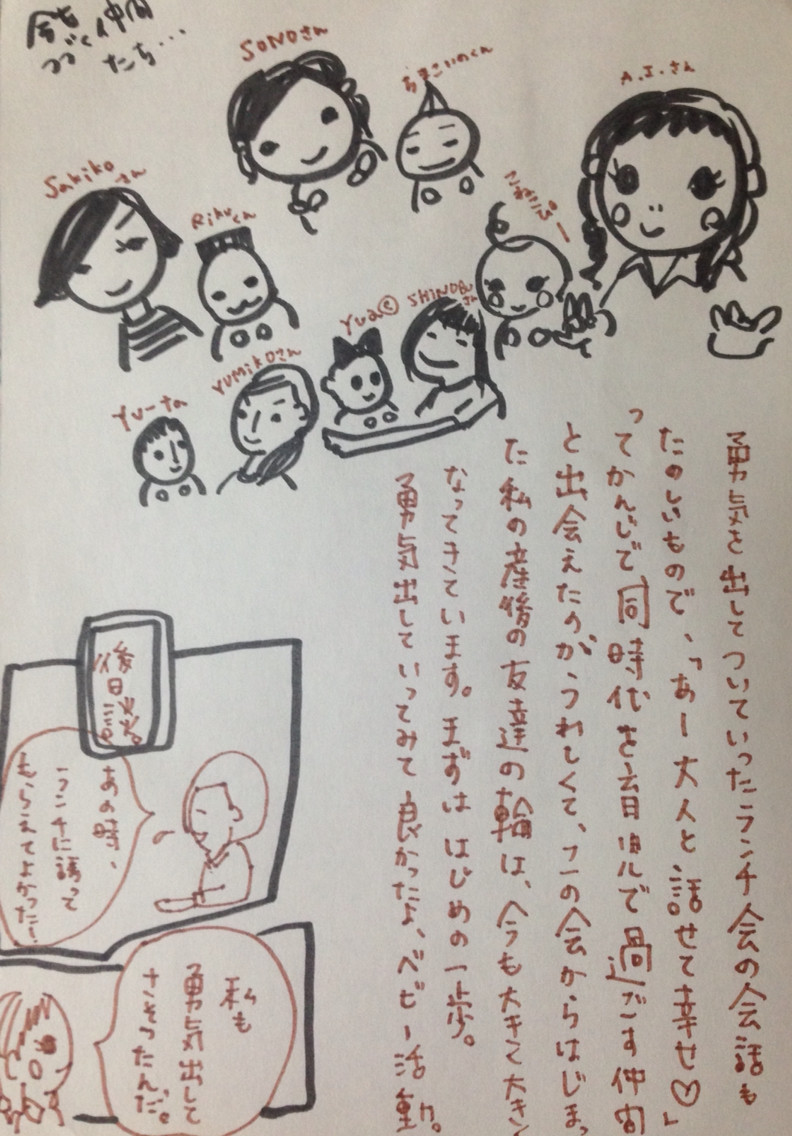 今もつづく仲間
たち...
SONOさん
ちまこいのくん
A.I.さん
Sakikoさん
Rikuくん
たぁたんぷー
Yua©
SHINOBUさん
YUMIKOさん
Yu-ta
勇気を出してついていったランチ会の会話も
たのしいもので、「あー大人と話せて幸せ♡」
ってかんじで同時代を育児で過ごす仲間
と出会えたのがうれしくて、この会からはじまっ
た私の産後の友達の輪は、今も大きく大きく
なってきています。まずははじめの一歩。
勇気出していってみて良かったよ、ベビー活動。
後日談。
あの時、
ランチに誘って
もらえてよかった!
私も
勇気出して
さそったんだ。